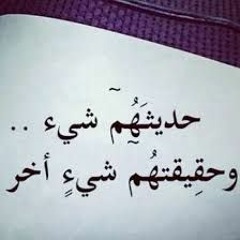 حديثَهُم شيء ..
وحقِيقتهُم شيءٍ أخر